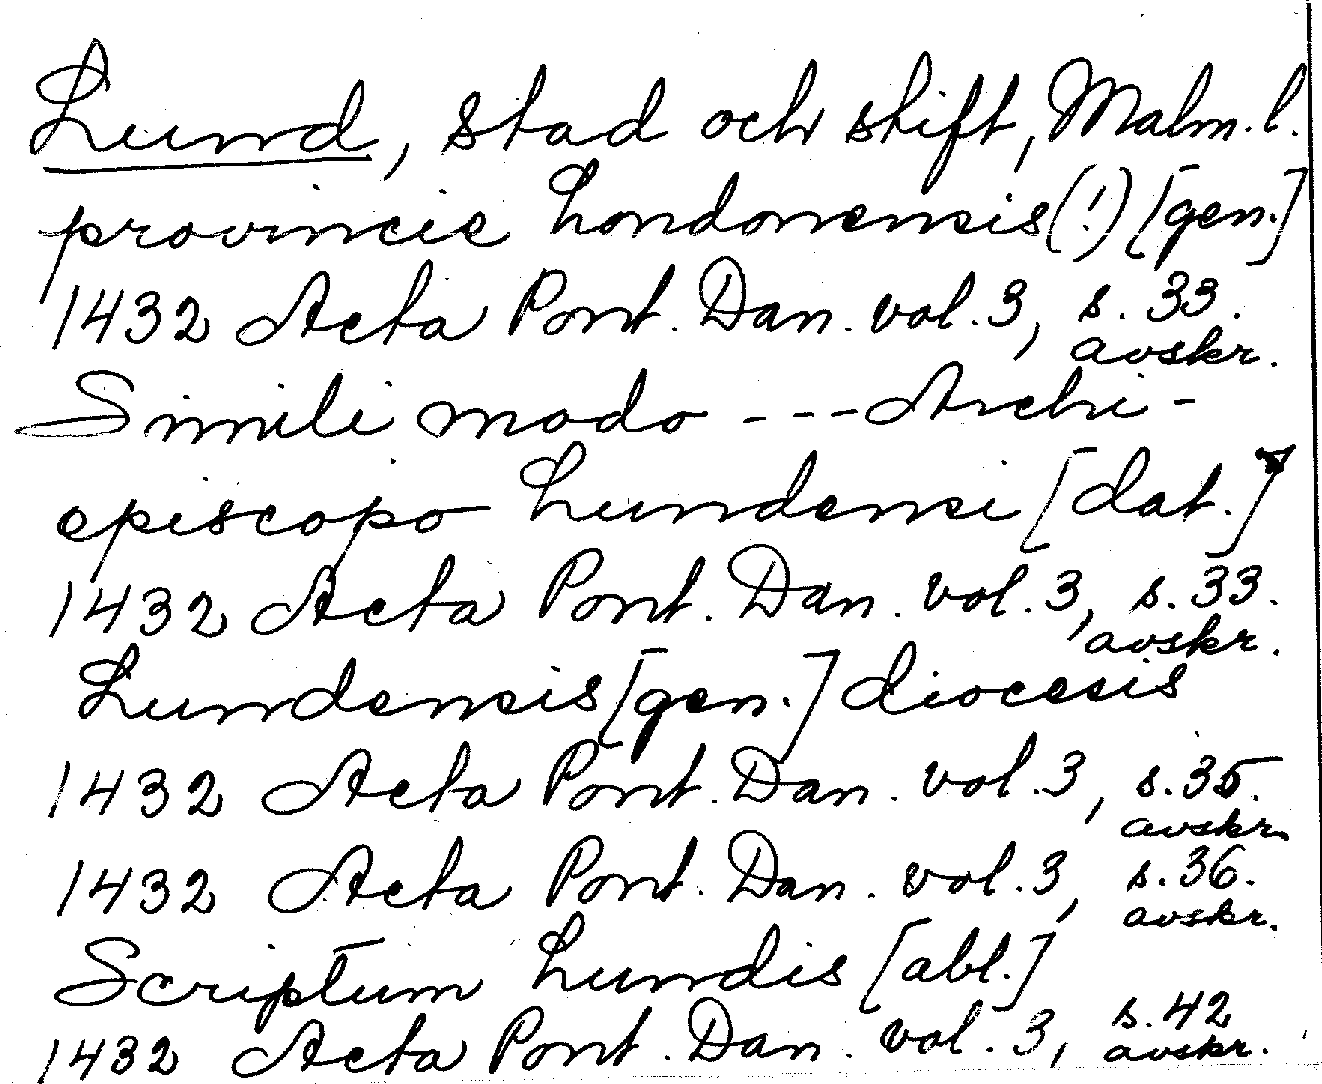 Lund, stad och stift, Malm. l.
provincie Londonensis (!) [gen.]
1432 Acta Pont. Dan. vol. 3, s. 33.
avskr.
Simili modo --- Archi-
episcopo Lundensi [dat.]
1432 Acta Pont. Dan. vol. 3, s. 33.
avskr.
Lundensis [gen.] diocesis
1432 Acta Pont. Dan. vol. 3, s. 35.
avskr.
1432 Acta Pont. Dan. vol. 3, s. 36.
avskr.
Scriptum Lundis [abl.]
1432 Acta Pont. Dan. vol. 3, s. 42
avskr.